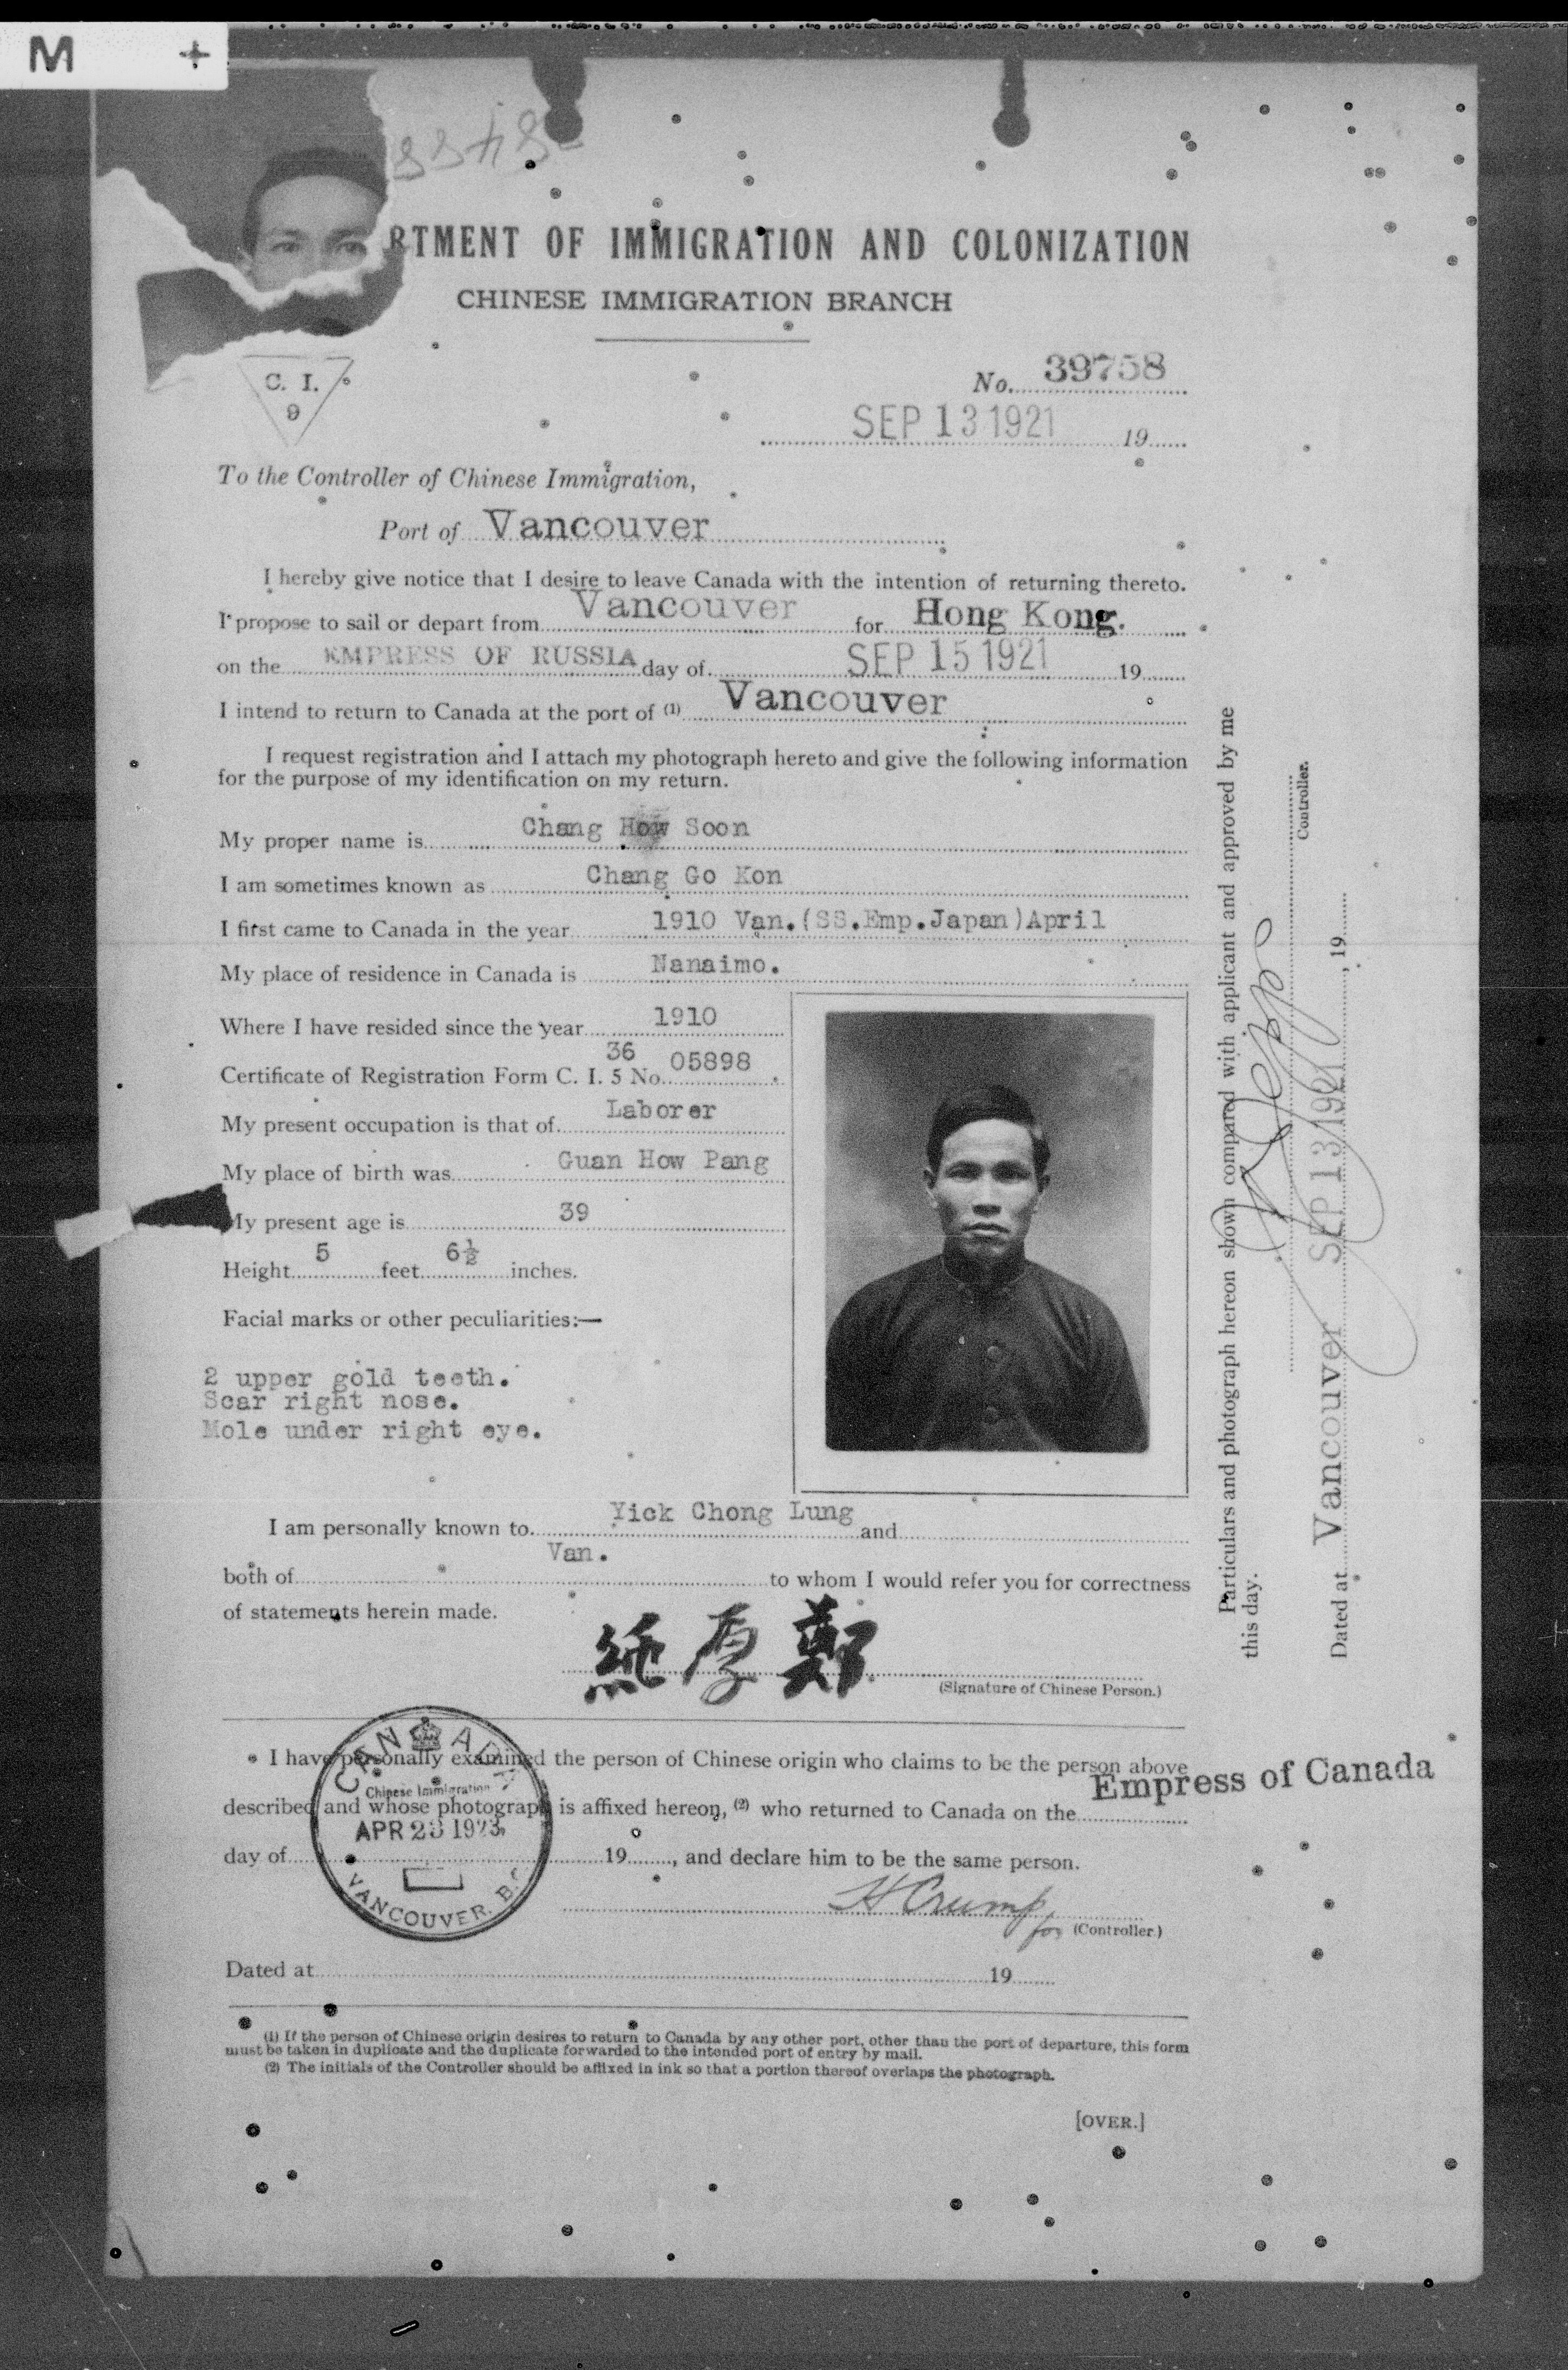 M +
RTMENT OF IMMIGRATION AND COLONIZATION
CHINESE IMMIGRATION BRANCH
C. I.
9
No. 39758
SEP 13 1921 19
To the Controller of Chinese Immigration,
Port of Vancouver
I hereby give notice that I desire to leave Canada with the intention of returning thereto.
I propose to sail or depart from Vancouver for Hong Kong.
on the EMPRESS OF RUSSIA day of SEP 15 1921 19
I intend to return to Canada at the port of (1) Vancouver
I request registration and I attach my photograph hereto and give the following information
for the purpose of my identification on my return.
My proper name is Chang How Soon
I am sometimes known as Chang Go Kon
I first came to Canada in the year 1910 Van.(SS.Emp.Japan)April
My place of residence in Canada is Nanaimo.
Where I have resided since the year 1910
36
Certificate of Registration Form C. I. 5 No. 05898
My present occupation is that of Laborer
My place of birth was Guan How Pang
My present age is 39
Height 5 feet 6½ inches.
Facial marks or other peculiarities:—
2 upper gold teeth.
Scar right nose.
Mole under right eye.
I am personally known to Yick Chong Lung and
both of Van. to whom I would refer you for correctness
of statements herein made.
純厚鄭
(Signature of Chinese Person.)
I have personally examined the person of Chinese origin who claims to be the person above
described and whose photograph is affixed hereon, (2) who returned to Canada on the Empress of Canada
day of 19 , and declare him to be the same person.
CANADA
Chinese Immigration
VANCOUVER. B.C.
H Crump
for (Controller)
Dated at 19
(1) If the person of Chinese origin desires to return to Canada by any other port, other than the port of departure, this form
must be taken in duplicate and the duplicate forwarded to the intended port of entry by mail.
(2) The initials of the Controller should be affixed in ink so that a portion thereof overlaps the photograph.
[OVER.]
Particulars and photograph hereon shown compared with applicant and approved by me
this day.
Controller.
Dated at Vancouver SEP 13 1921 , 19